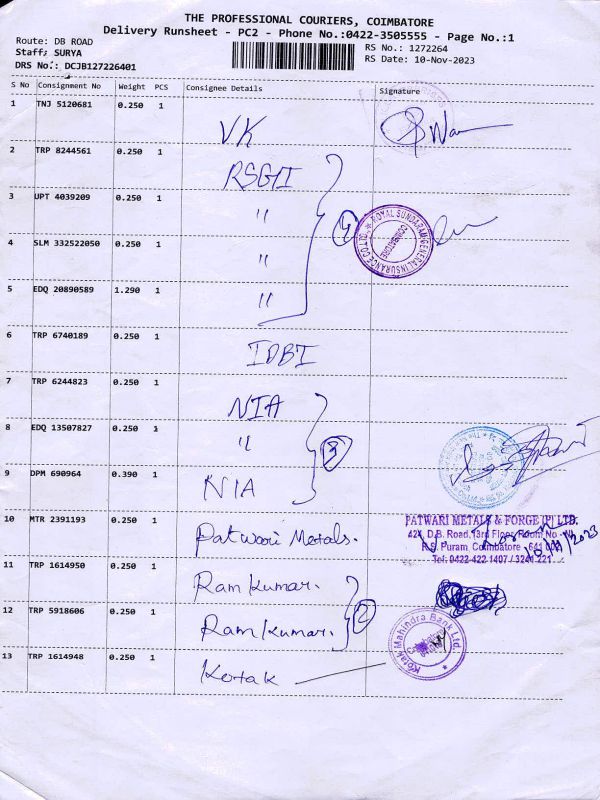 THE PROFESSIONAL COURIERS, COIMBATORE
Delivery Runsheet - PC2 - Phone No.:0422-3505555 - Page No.:1
Route: DB ROAD
RS No.: 1272264
Staff: SURYA
RS Date: 10-Nov-2023
DRS No.: DCJB127226401
S No Consignment No Weight PCS Consignee Details Signature
1 TNJ 5120681 0.250 1 VK
2 TRP 8244561 0.250 1 RSGI
3 UPT 4039209 0.250 1 "
4 SLM 332522050 0.250 1 "
4
ROYAL SUNDARAM GENERAL INSURANCE CO. LTD.
COIMBATORE
5 EDQ 20890589 1.290 1 "
6 TRP 6740189 0.250 1 IDBI
7 TRP 6244823 0.250 1 NIA
8 EDQ 13507827 0.250 1 "
3
9 DPM 690964 0.390 1 NIA
10 MTR 2391193 0.250 1 Patwari Metals.
PATWARI METALS & FORGE (P) LTD.
424, D.B. Road, 13rd Floor, Room No
R.S. Puram, Coimbatore - 641
Tel: 0422-422 1407 / 3241 221
11 TRP 1614950 0.250 1 Ram Kumar.
12 TRP 5918606 0.250 1 Ram Kumar.
2
Kotak Mahindra Bank Ltd.
13 TRP 1614948 0.250 1 Kotak